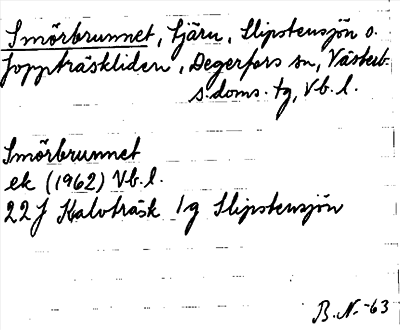 Smörbrunnet, tjärn, Slipstensjön o.
Joppträskliden, Degerfors sn, Västerb.
s. doms. tg, Vb. l.
Smörbrunnet
ek (1962) Vb. l.
22J Kalvträsk 1g Slipstensjön
B. N. -63